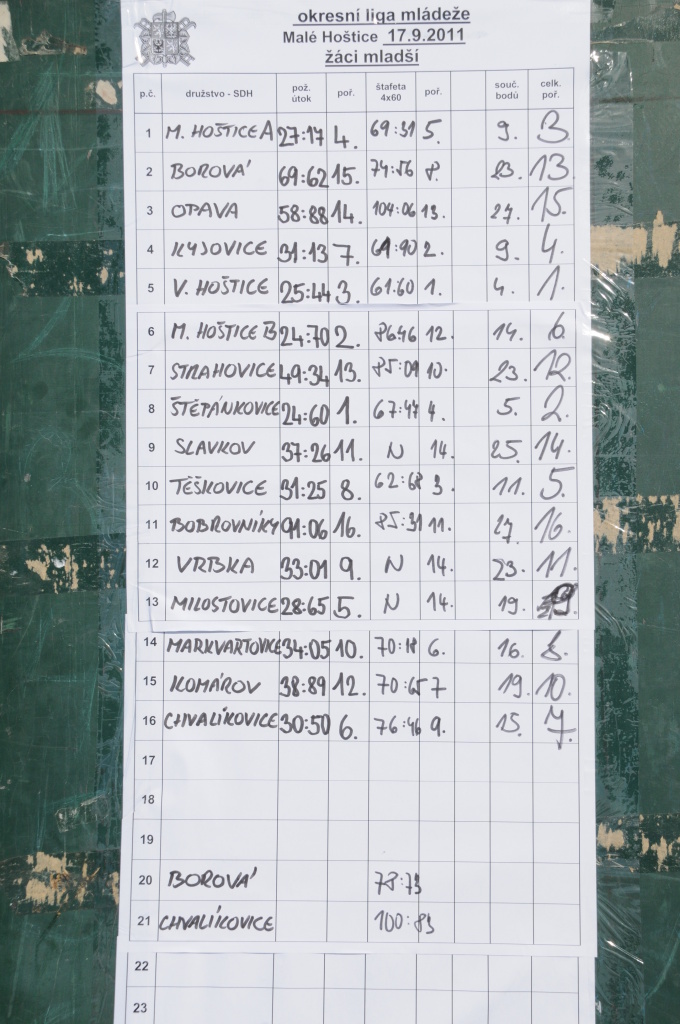 okresní liga mládeže
Malé Hoštice 17.9.2011
žáci mladší
p.č. družstvo - SDH pož. útok poř. štafeta 4x60 poř. souč. bodů celk. poř.
1 M. HOŠTICE A 27:17 4. 69:31 5. 9. 3.
2 BOROVÁ 69:62 15. 74:56 8. 23. 13.
3 OPAVA 58:88 14. 104:06 13. 27. 15.
4 KYJOVICE 31:13 7. 61:90 2. 9. 4.
5 V. HOŠTICE 25:44 3. 61:60 1. 4. 1.
6 M. HOŠTICE B 24:70 2. 86:46 12. 14. 6.
7 STRAHOVICE 49:34 13. 85:01 10. 23. 12.
8 ŠTĚPÁNKOVICE 24:60 1. 67:47 4. 5. 2.
9 SLAVKOV 37:26 11. N 14. 25. 14.
10 TĚŠKOVICE 31:25 8. 62:68 3. 11. 5.
11 BOBROVNÍKY 91:06 16. 85:31 11. 27. 16.
12 VRBKA 33:01 9. N 14. 23. 11.
13 MILOSTOVICE 28:65 5. N 14. 19. 9.
14 MARKVARTOVICE 34:05 10. 70:18 6. 16. 8.
15 KOMÁROV 38:89 12. 70:65 7 19. 10.
16 CHVALÍKOVICE 30:50 6. 76:46 9. 15. 7.
17
18
19
20 BOROVÁ 78:73
21 CHVALÍKOVICE 100:83
22
23